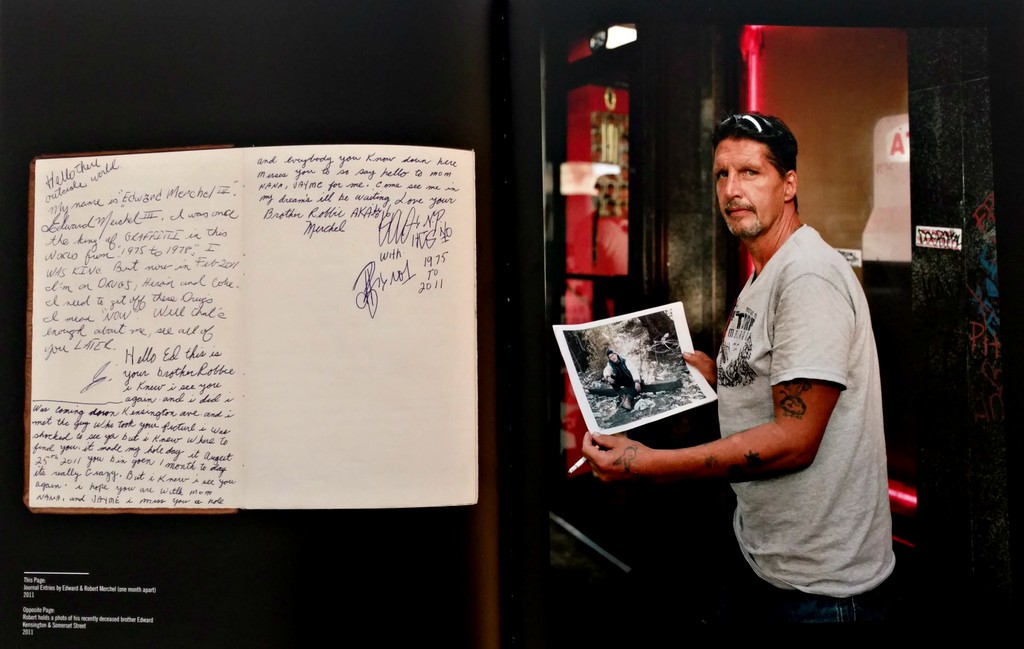 Hello there
outside world
My name is "Edward Merchel III".
Edward Merchel III. I was once
the king of GRAFFITTI in this
WORLD from "1975 to 1978". I
WAS KING. But now in Feb 2011
I'm on DRUGS, Heroin and Coke.
I need to get off these Drugs
I mean "NOW". Well that's
enough about me, see all of
you LATER.
Hello Ed this is
your brother Robbie
i knew i see you
again and i did i
was coming down Kensington ave and i
met the guy who took your picturl i was
shocked to see ya but i knew where to
find you. it made my hole day it August
25th 2011 you bin goen 1 month to day
its really Crazy. But i knew i see you
again. i hope you are with mom
NANA, and JAYME i miss you a hole
and everybody you know down here
misses you to so say hello to mom
NANA, JAYME for me. Come see me in
my dreams ill be waiting Love your
Brother Robbie AKA
Merchel
with
1975
TO
2011
No1
This Page:
Journal Entries by Edward & Robert Merchel (one month apart)
2011
Opposite Page:
Robert holds a photo of his recently deceased brother Edward
Kensington & Somerset Street
2011